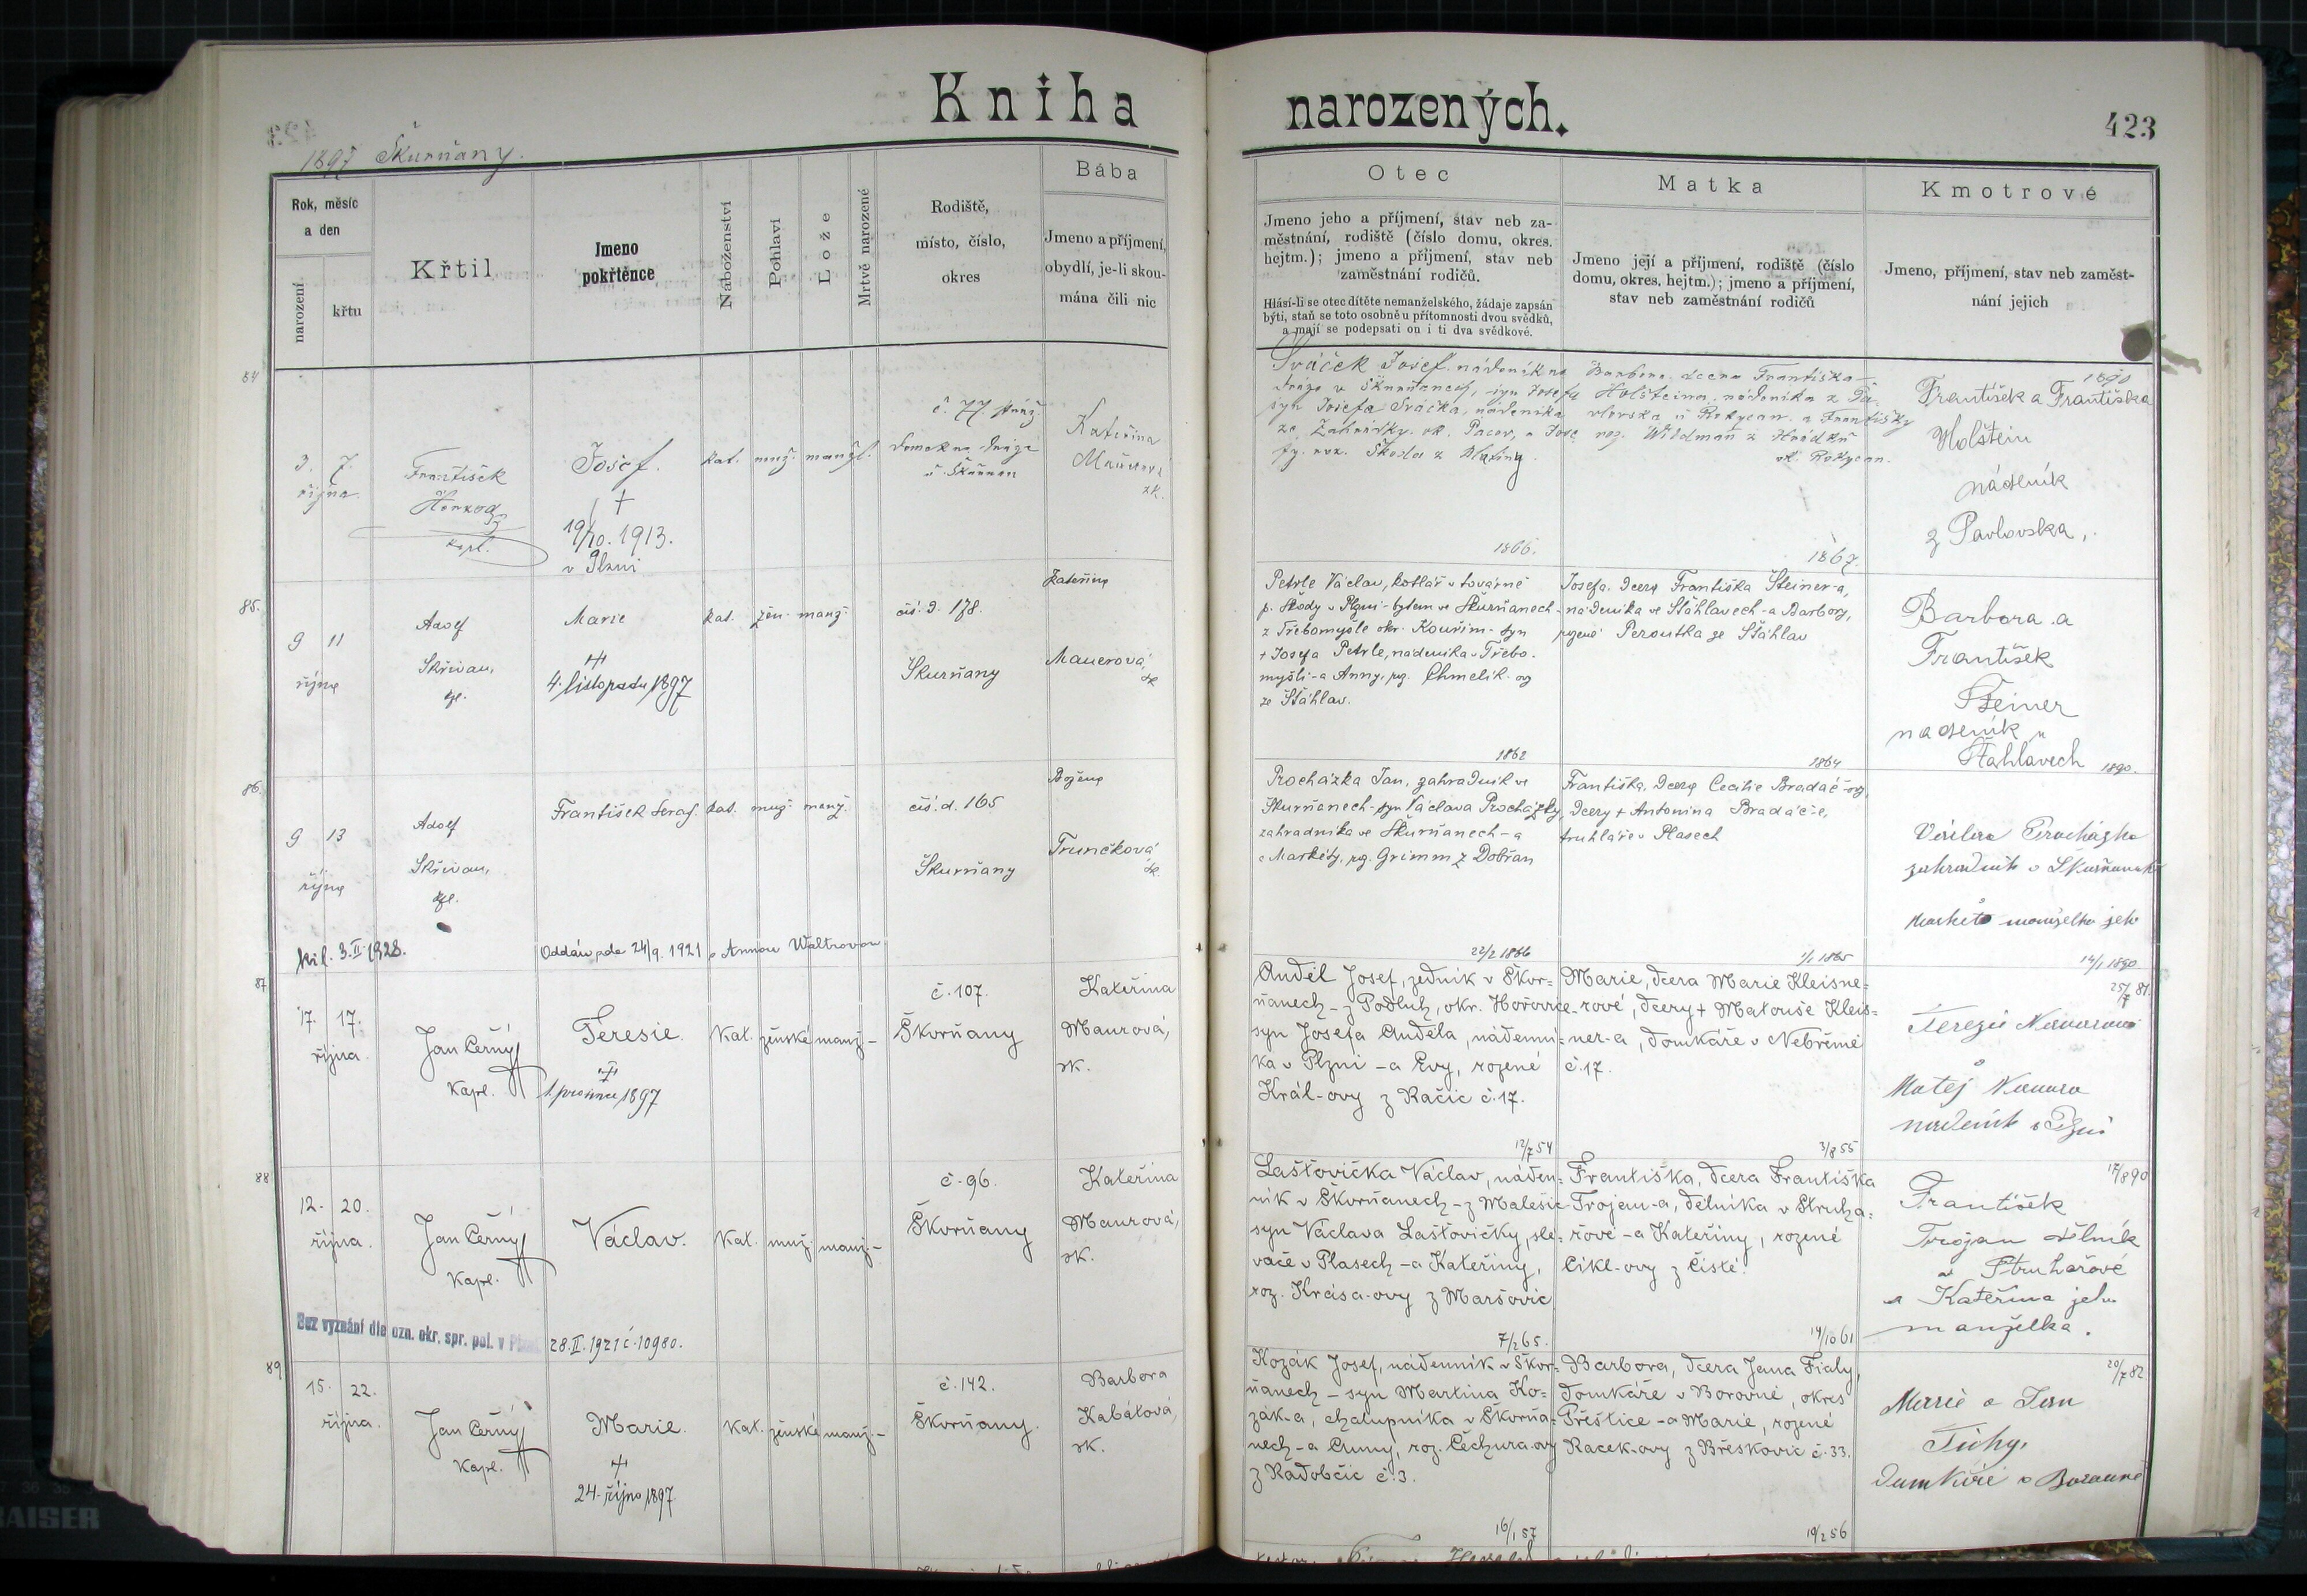 Kniha narozených.
423
1897 Škurňany.
Rok, měsíc
a den
narození
křtu
Křtil
Jmeno
pokřtěnce
Náboženství
Pohlaví
Lože
Mrtvě narozené
Rodiště,
místo, číslo,
okres
Bába
Jmeno a příjmení,
obydlí, je-li skou-
mána čili nic
Otec
Jmeno jeho a příjmení, stav neb za-
městnání, rodiště (číslo domu, okres.
hejtm.); jmeno a příjmení, stav neb
zaměstnání rodičů.
Hlásí-li se otec dítěte nemanželského, žádaje zapsán
býti, staň se toto osobně u přítomnosti dvou svědků,
a mají se podepsati on i ti dva svědkové.
Matka
Jmeno její a příjmení, rodiště (číslo
domu, okres. hejtm.); jmeno a příjmení,
stav neb zaměstnání rodičů
Kmotrové
Jmeno, příjmení, stav neb zaměst-
nání jejich
84
3. 7.
října
František
kapl.
Josef.
+
19/10. 1913.
v Plzni
kat.
muž.
manž.
č. 77.
Kateřina
Josef, nádeník na
syn Josefa
syn Josefa Sváčka, nádeníka
ok. Pacov, a Jose
fy, roz. Škoda z
1866.
Barbora, dcera Františka
Holšteina, nádeníka z
u Rokycan, a Františky
roz. Wildman z Hrádku
ok. Rokycan.
1867.
1890
František a Františka
Holštein
nádeník
z Pavlovska,
85.
9 11
října
Adolf
Skřivan,
Marie
+
4. listopadu 1897
kat.
žen.
manž.
čís. d. 178.
Škurňany
Kateřina
Mauerová,
zk
Petrle Václav, kotlář v továrně
p. Škody v Plzni - bytem ve Škurňanech -
z Třebomysle okr. Kouřim - syn
+ Josefa Petrle, nádeníka v Třebo-
myšli - a Anny, roz. Chmelík-ovy
ze Šťáhlav.
1862
Josefa, dcera Františka Šteiner-a,
nádeníka ve Šťáhlavech - a Barbory,
rozené Peroutka ze Šťáhlav
1864
Barbora a
František
Šteiner
nadeník v
Šťahlavech
1890.
86.
9 13
října
Adolf
Skřivan,
František Seraf.
kat.
muž.
manž.
čís. d. 165
Škurňany
Božena
Trunčková
zk.
bil. 3.II.1928.
Oddán zde 24/9. 1921 s Annou Waltrovou
Procházka Jan, zahradník ve
Škurňanech - syn Václava Procházky,
zahradníka ve Škurňanech - a
Markéty, roz. Grimm z Dobřan
22/2 1866
Františka, dcera Cecilie Bradáč-ovy,
dcery + Antonína Bradáč-e,
truhláře v Plasech
1/1 1865
Procházka
zahradník v Škurňanech
Markéta manželka jeho
14/1 1890
87
17. 17.
října
Jan Černý
kapl.
Teresie.
+
1. prosince 1897
kat.
ženské
manž.-
č. 107.
Škorňany
Kateřina
Maurová,
zk.
Anděl Josef, zedník v Škor-
ňanech - z Podluh, okr. Hořovice -
syn Josefa Anděla, nádenní-
ka v Plzni - a Evy, rozené
Král-ovy z Račic č. 17.
12/7 54
Marie, dcera Marie Kleisne-
rové, dcery + Matouše Kleis-
ner-a, domkáře v Nebřemi
č. 17.
3/8 55
25/7 87.
Terezie
Matěj
nadeník v Plzni
88
12. 20.
října.
Jan Černý
kapl.
Václav.
kat.
muž.
manž.-
č. 96.
Škorňany
Kateřina
Maurová,
zk.
Bez vyznání dle ozn. okr. spr. pol. v Plzni 28.II.1921 č. 10980.
Lašťovička Václav, náden-
ník v Škorňanech - z Malesic -
syn Václava Lašťovičky, slé-
vače v Plasech - a Kateřiny,
roz. Krása-ovy z Maršovic
7/2 65.
Františka, dcera Františka
Trojan-a, dělníka v Struha-
řově - a Kateřiny, rozené
Cikl-ovy z Čisté.
14/10 61
17/8 90
František
Trojan dělník
Struhařově
a Kateřina jeho
manželka.
89
15. 22.
října.
Jan Černý
kapl.
Marie.
+
24. října 1897
kat.
ženské
manž.-
č. 142.
Škorňany.
Barbora
Kabátová,
zk.
Kozák Josef, nádenník v Škor-
ňanech - syn Martina Ko-
zák-a, chalupníka v Škorňa-
nech - a Anny, roz. Čechura-ovy
z Radobčic č. 3.
16/1 57
Barbora, dcera Jana Fialy,
domkáře v Borovně, okres
Přeštice - a Marie, rozené
Racek-ovy z Břeskovic č. 33.
19/2 56
20/7 82
Marie a Jan
Tichý,
domkáři v Borovně